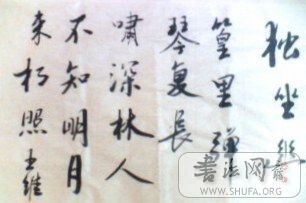 独坐幽
篁里弹
琴复长
啸深林人
不知明月
来相照王维
書法网
WWW.SHUFA.ORG